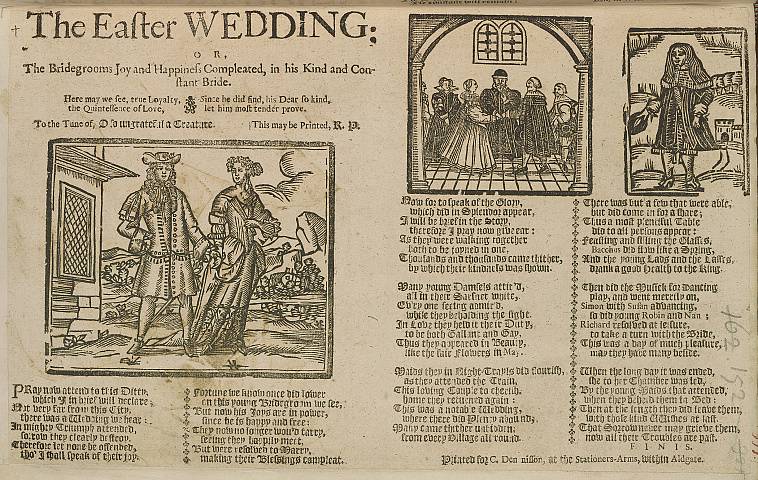 The Easter WEDDING;
OR,
The Bridegrooms Joy and Happiness Compleated, in his Kind and Con-
stant Bride.
Here may we see, true Loyalty,
the Quintessence of Love,
Since he did find, his Dear so kind,
let him most tender prove.
To the Tune of, O so ungrateful a Creature.
This may be Printed, R. P.
PRay now attend to this Ditty,
which I in brief will declare;
Not very far from this City,
there was a Wedding we hear:
In mighty Triumph attended,
sorrow they clearly destroy,
Therefore let none be offended,
tho' I shall speak of their joy.
Fortune we know once did lower
on this young Bridegroom we see,
But now his Joys are in power,
since he is happy and free:
They now no longer would tarry,
seeing they happily meet,
But were resolved to Marry,
making their Blessings compleat.
Now for to speak of the Glory,
which did in Splendor appear,
I will be brief in the Story,
therefore I pray now give ear:
As they were walking together
both to be joyned in one,
Thousands and thousands came thither,
by which their kindness was shown.
Many young Damsels attir'd,
all in their Sarsnet white,
Ev'ry one seeing admir'd,
while they beholding the sight:
In Love they held it their Duty,
to be both Gallant and Gay,
Thus they appeared in Beauty,
like the fair Flowers in May.
Maids they in Night-Rayls did flourish,
as they attended the Train,
This loving Couple to cherish,
home they returned again:
This was a notable Wedding,
where there did Plenty abound,
Many came thither
from every Village all round.
There was but a few that were able,
but did come in for a share;
Thus a most plentiful Table
did to all persons appear:
Feasting and filling the Glasses,
Bacchus did flow like a Spring,
And the young Lads and the Lasses,
drank a good health to the King.
Then did the Musick for dancing
play, and went merrily on,
Simon with Susan advancing,
so did young Robin and Nan;
Richard resolved at leisure,
to take a turn with the Bride,
This was a day of much pleasure,
may they have many beside.
When the long day it was ended,
she to her Chamber was led,
By the young Maids that attended,
when they beheld them in Bed:
Then at the length they did leave them,
with those kind Wishes at last,
That Sorrow never may grieve them,
now all their Troubles are past.
FINIS.
Printed for C. Dennisson, at the Stationers-Arms, within Aldgate.